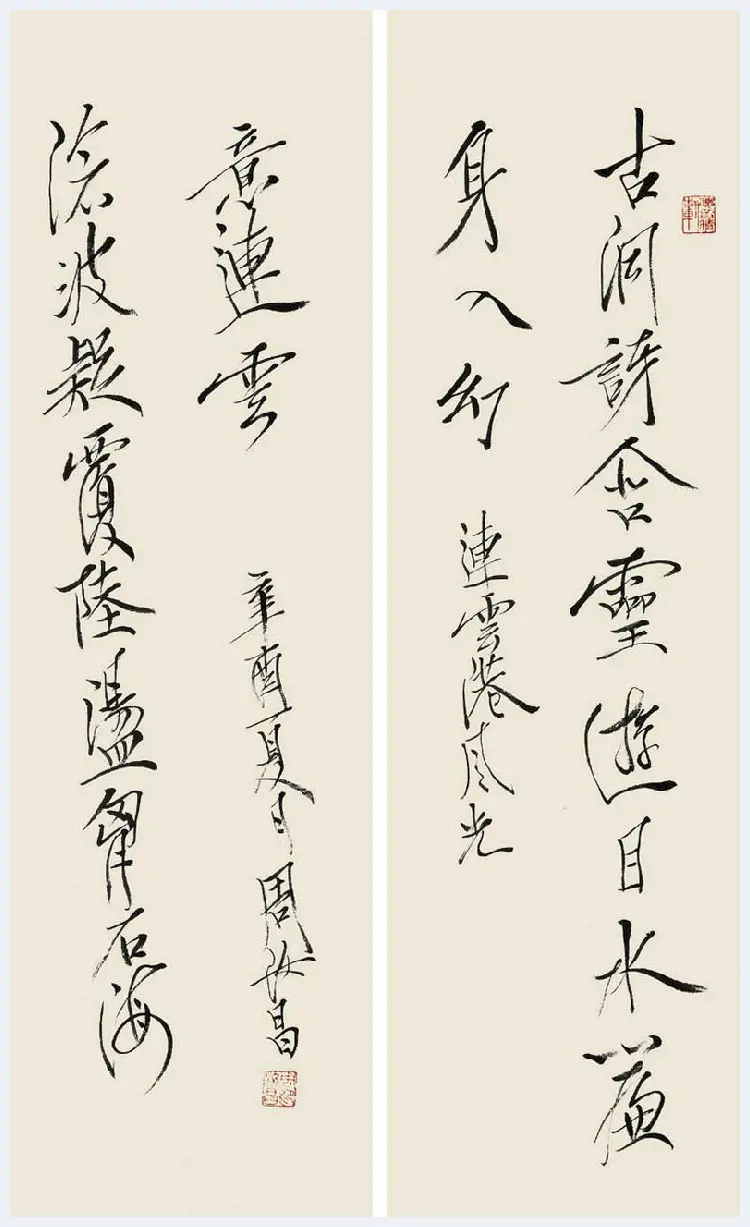 古洞訝含靈遊目水簾
身入幻
連雲港風光
滄波疑覆陸盪胷石海
意連雲
辛酉夏日周汝昌